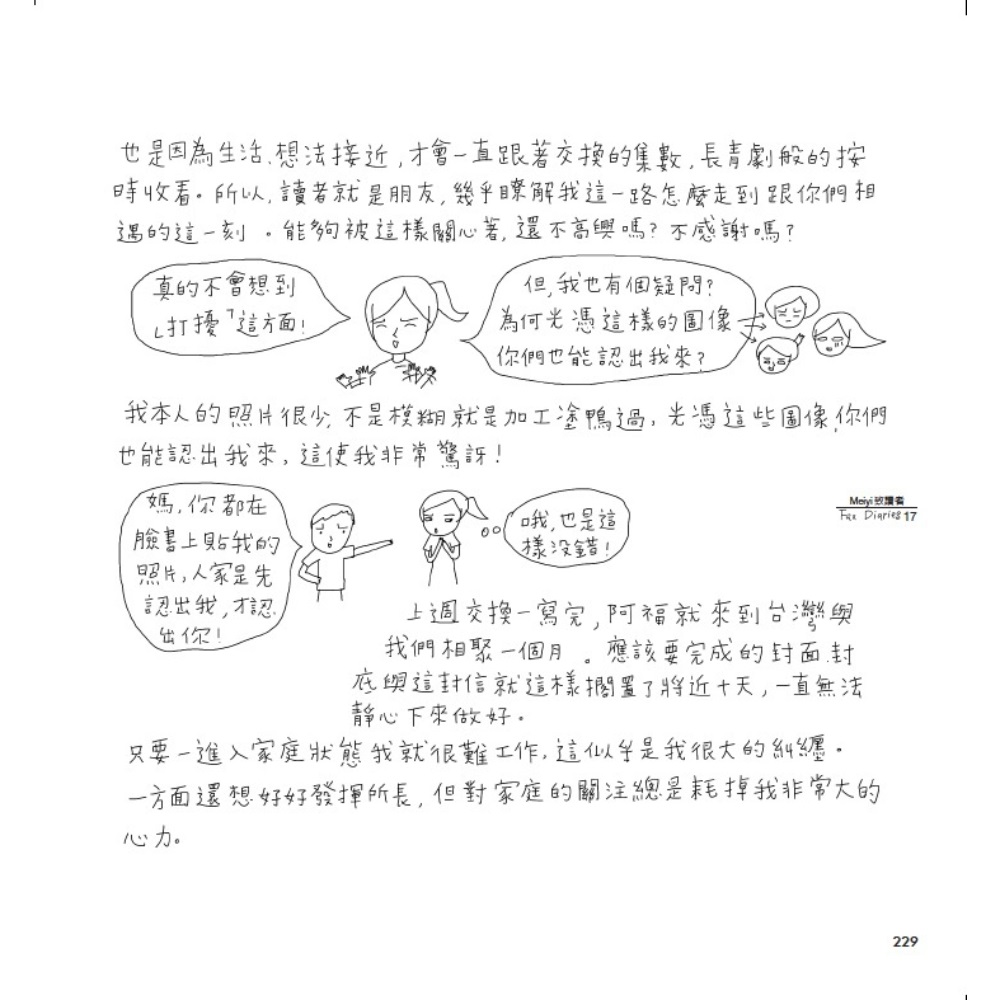 也是因為生活、想法接近，才會一直跟著交換的集數，長青劇般的按
時收看。所以，讀者就是朋友，幾乎瞭解我這一路怎麼走到跟你們相
遇的這一刻。能夠被這樣關心著，還不高興嗎？不感謝嗎？
真的不會想到
「打擾」這方面！
但，我也有個疑問？
為何光憑這樣的圖像
你們也能認出我來？
我本人的照片很少，不是模糊就是加工塗鴨過，光憑這些圖像，你們
也能認出我來，這使我非常驚訝！
媽，你都在
臉書上貼我的
照片，人家是先
認出我，才認
出你！
哦，也是這
樣沒錯！
Meiyi 致讀者
Fax Diaries 17
上週交換一寫完，阿福就來到台灣與
我們相聚一個月。應該要完成的封面、封
底與這封信就這樣擱置了將近十天，一直無法
靜心下來做好。
只要一進入家庭狀態我就很難工作，這似乎是我很大的糾纏。
一方面還想好好發揮所長，但對家庭的關注總是耗掉我非常大的
心力。
229